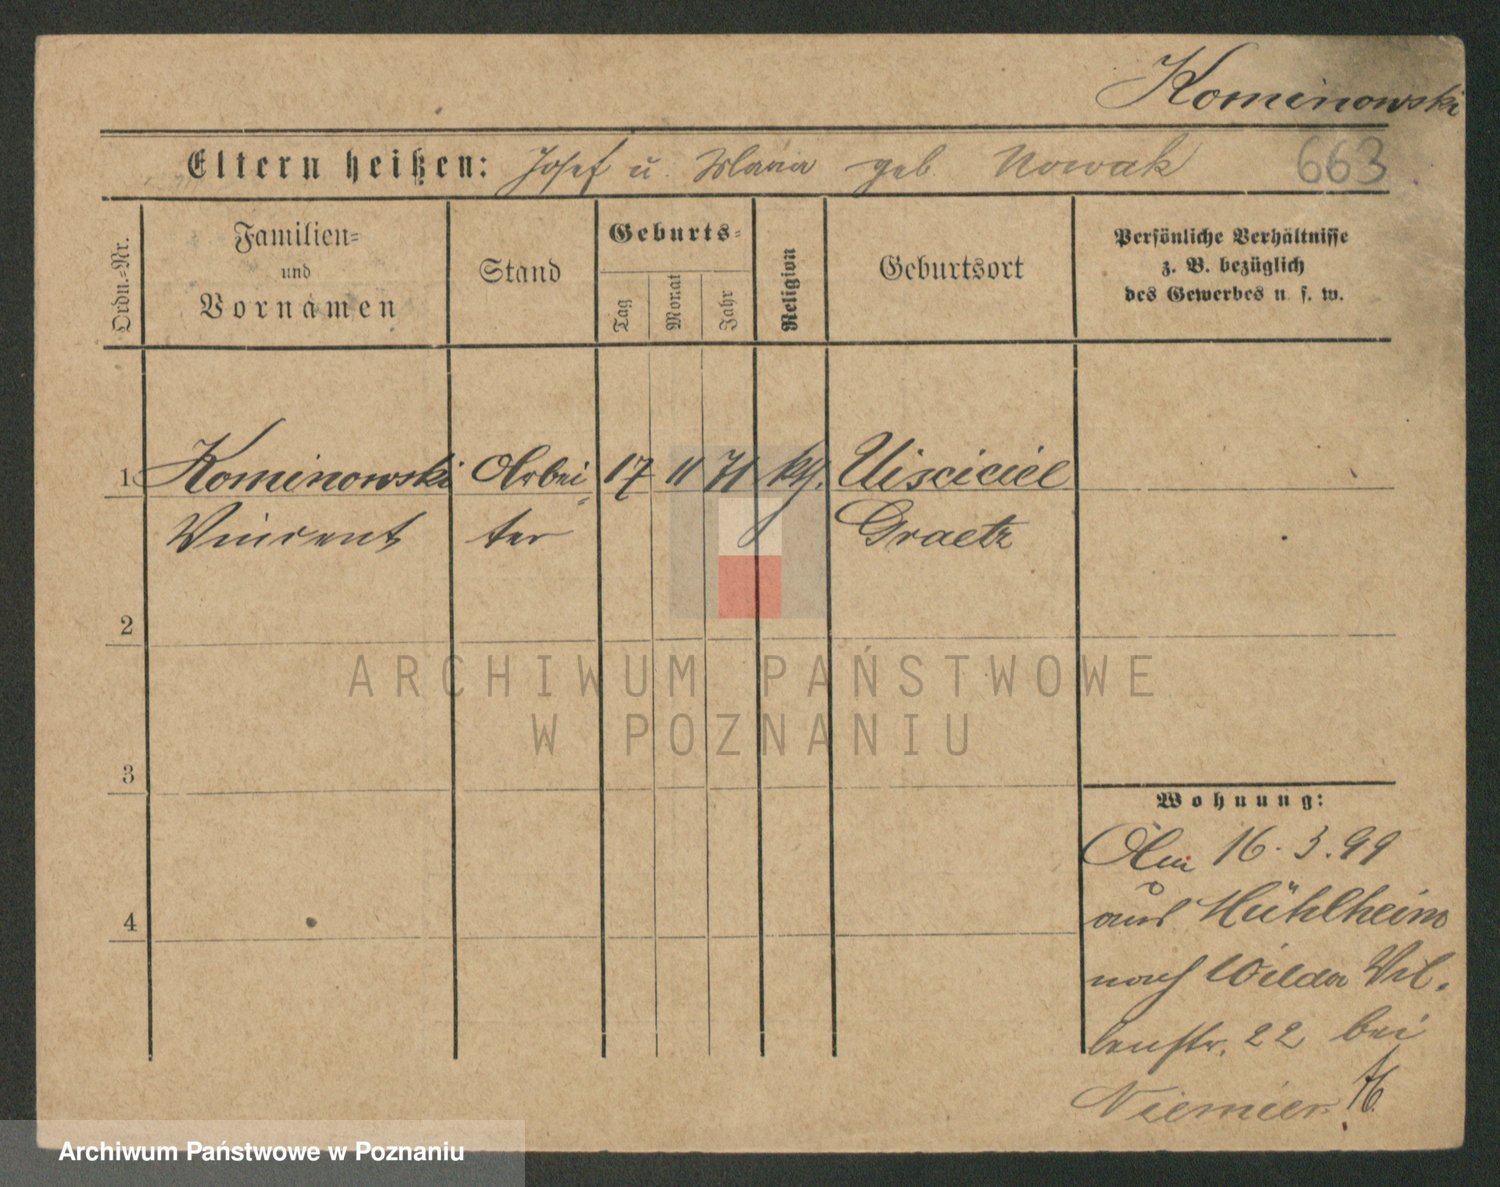 Kominowski
Eltern heißen: Josef u. Maria geb Nowak 663
Ordn.=Nr.
Familien=
und
Vornamen
Stand
Geburts=
Tag
Monat
Jahr
Religion
Geburtsort
Persönliche Verhältnisse
z. B. bezüglich
des Gewerbes u. s. w.
1 Kominowski Arbei= 17 11 71 kth. Uisciciel
Vincent ter Graetz
2
ARCHIWUM PAŃSTWOWE
W POZNANIU
3
Wohnung:
Am 16. 3. 99
4
aus Mühlheim
nach Wilda Vil.
lenstr. 22 bei
Niemier
Archiwum Państwowe w Poznaniu